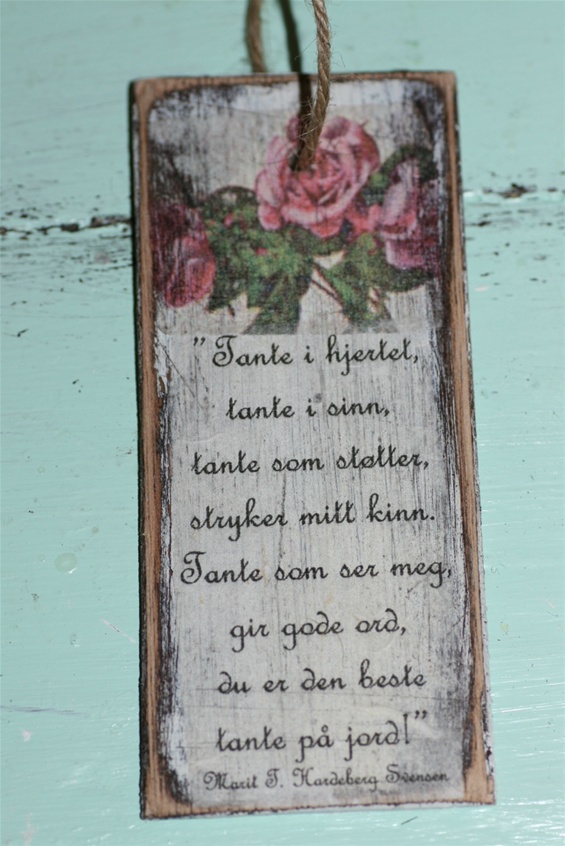 "Tante i hjertet,
tante i sinn,
tante som støtter,
stryker mitt kinn.
Tante som ser meg,
gir gode ord,
du er den beste
tante på jord!"
Marit T. Hardeberg Svensen